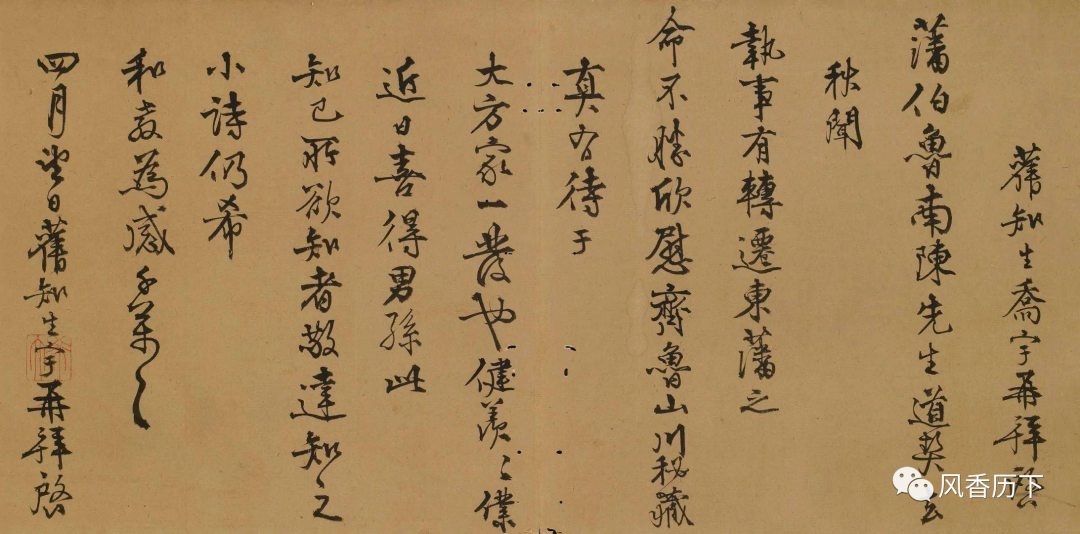 舊知生喬宇再拜啓
藩伯魯南陳先生道契云
秋聞
執事有轉遷東藩之
命不勝欣慰齊魯山川秘藏
真有待于
大方家一發也健羨〻僕
近日喜得男孫此
知己所欲知者敬達知之
小詩仍希
和教為感千萬〻
四月望日舊知生宇再拜啓
风香历下